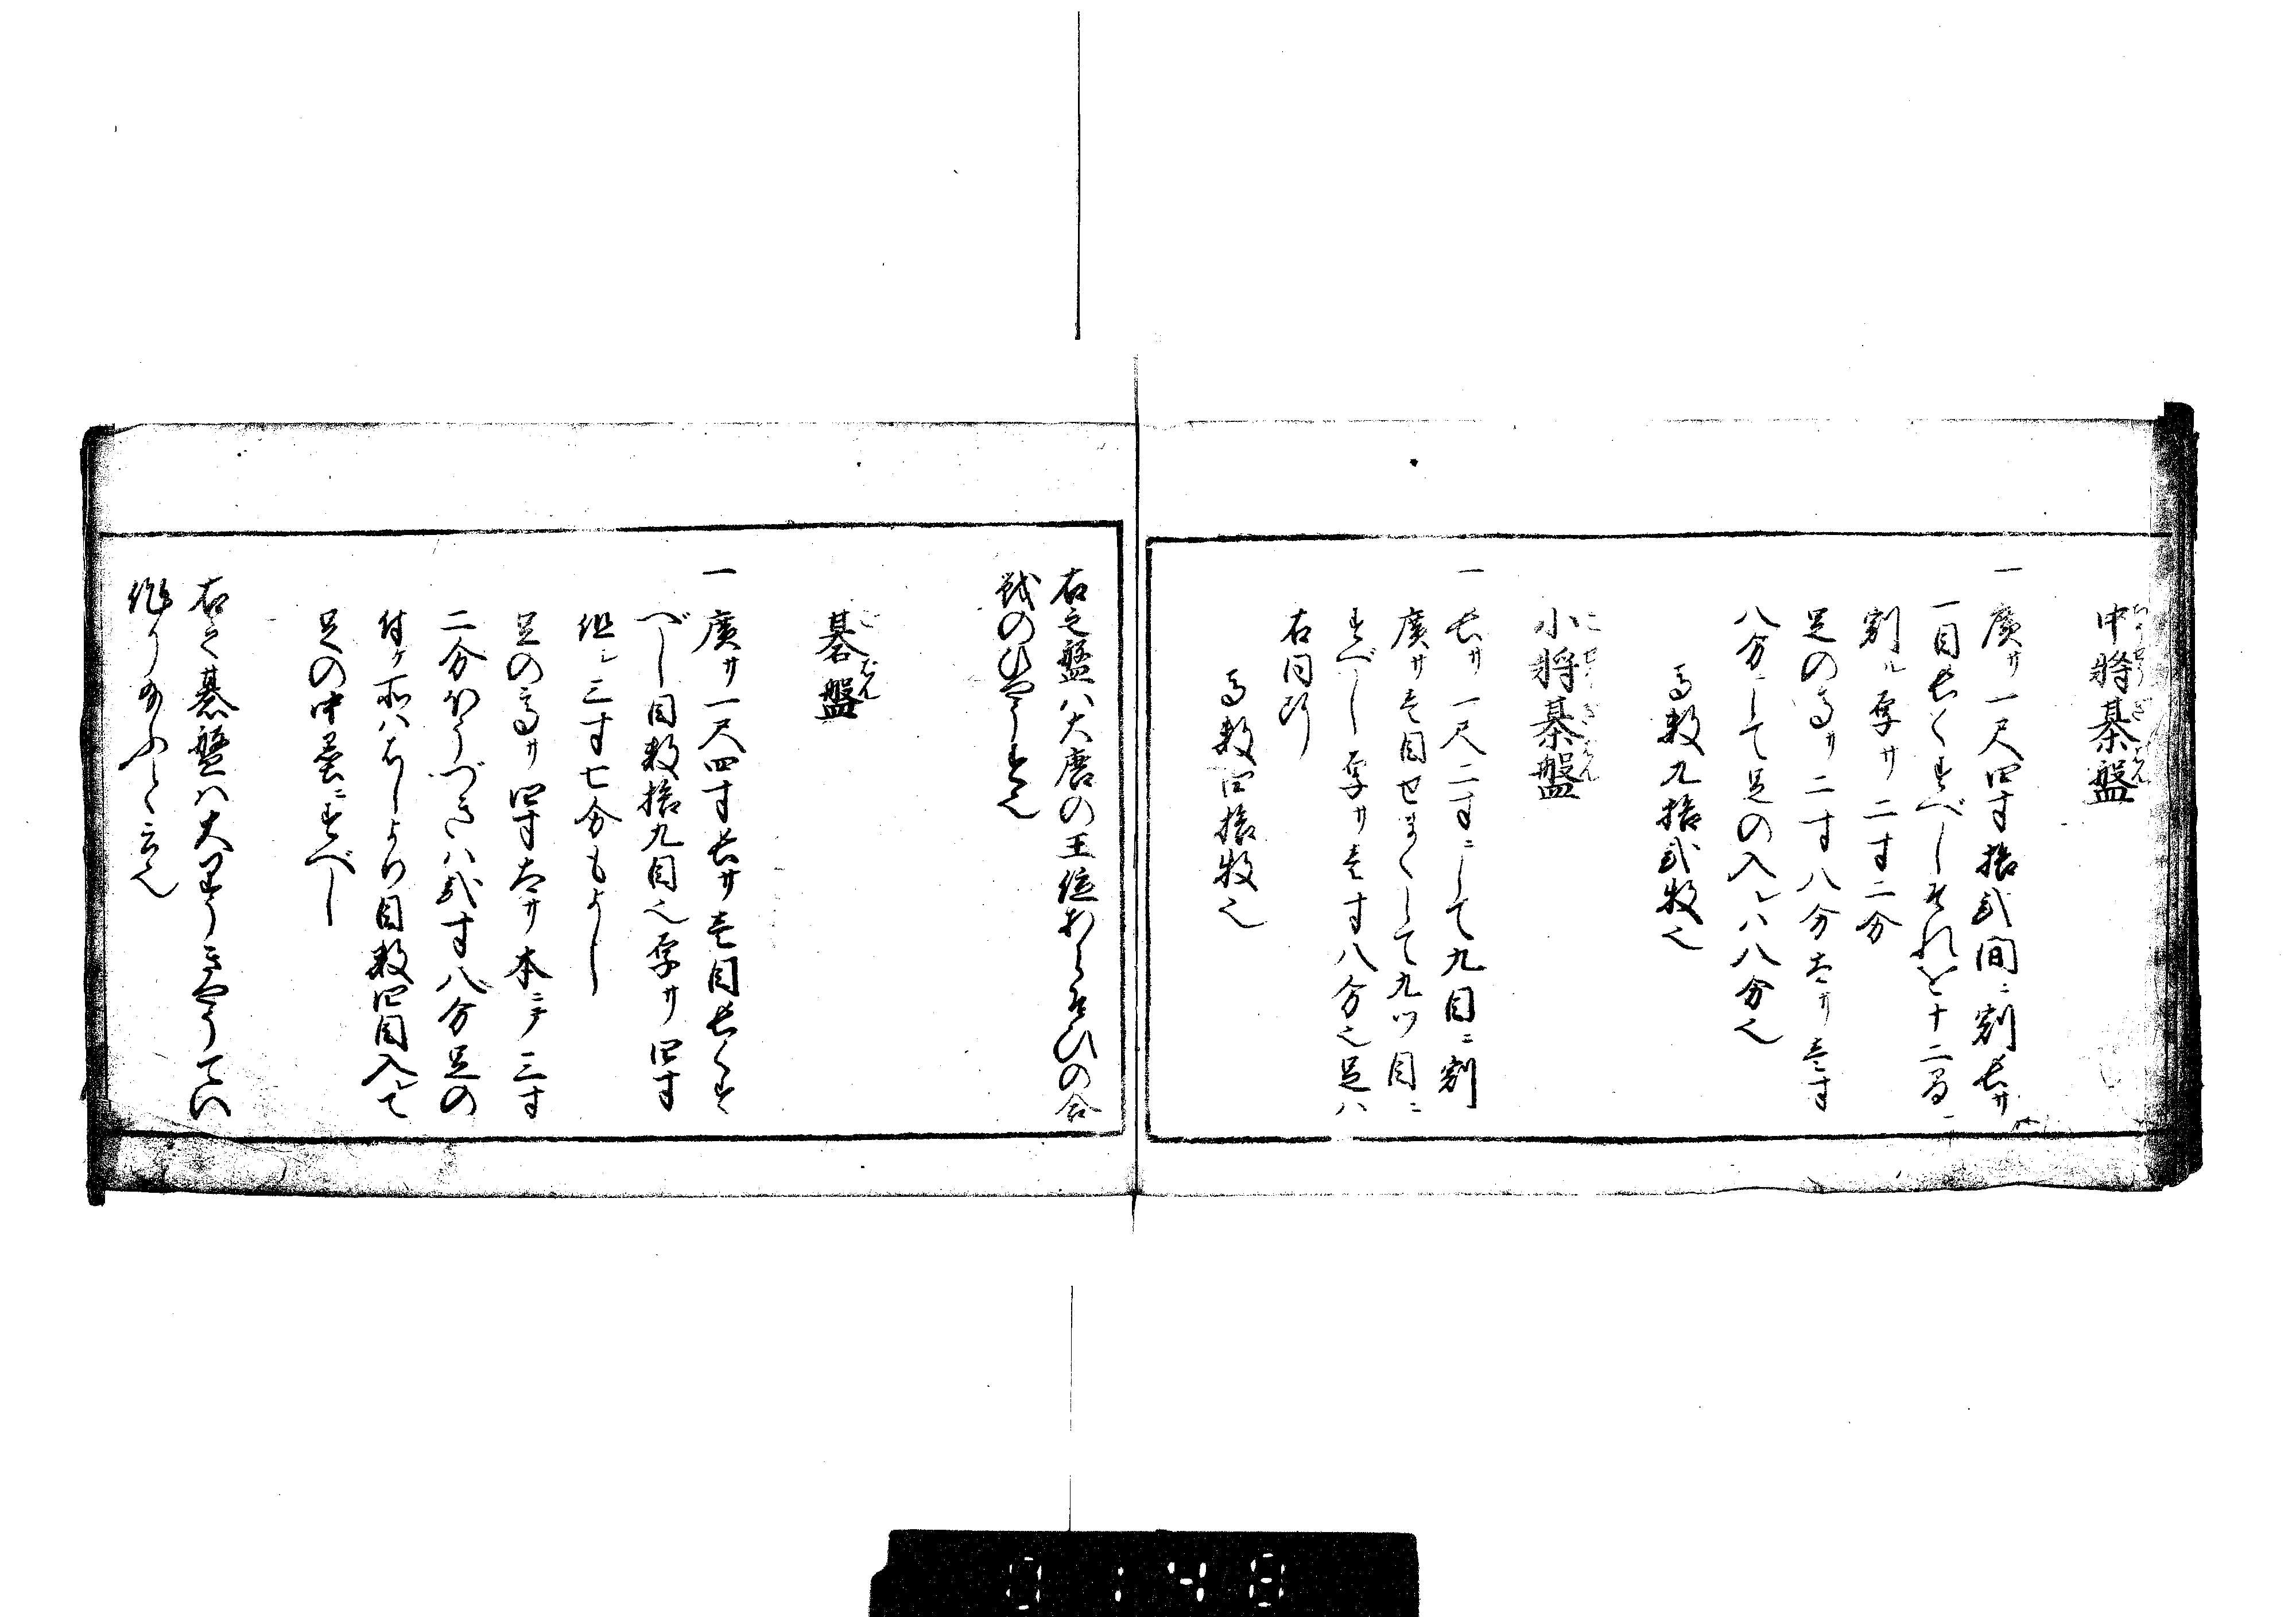 中将棊盤
一 廣サ一尺四寸拾弐間ニ割長サ
一目長くすべしそれを十二間ニ
割ル厚サ二寸二分
足の高サ二寸八分太サ壱寸
八分ニして足の入レハ八分也
馬数九拾弐枚也
小将棊盤
一 長サ一尺二寸ニして九目ニ割
廣サ壱目せまくして九ツ目ニ
すべし厚サ壱寸八分也足ハ
右同断
馬数四拾枚也
右之盤ハ大唐の王位あらそひの合
戦のひやうすん也
碁盤
一 廣サ一尺四寸長サ壱目長くす
べし目数拾九目也厚サ四寸
但シ三寸七分もよし
足の高サ四寸太サ本ニテ三寸
二分ほうづきハ弐寸八分足の
付ケ所ハはしより目数四目入して
足の中墨ニすべし
右之碁盤ハ大
作り